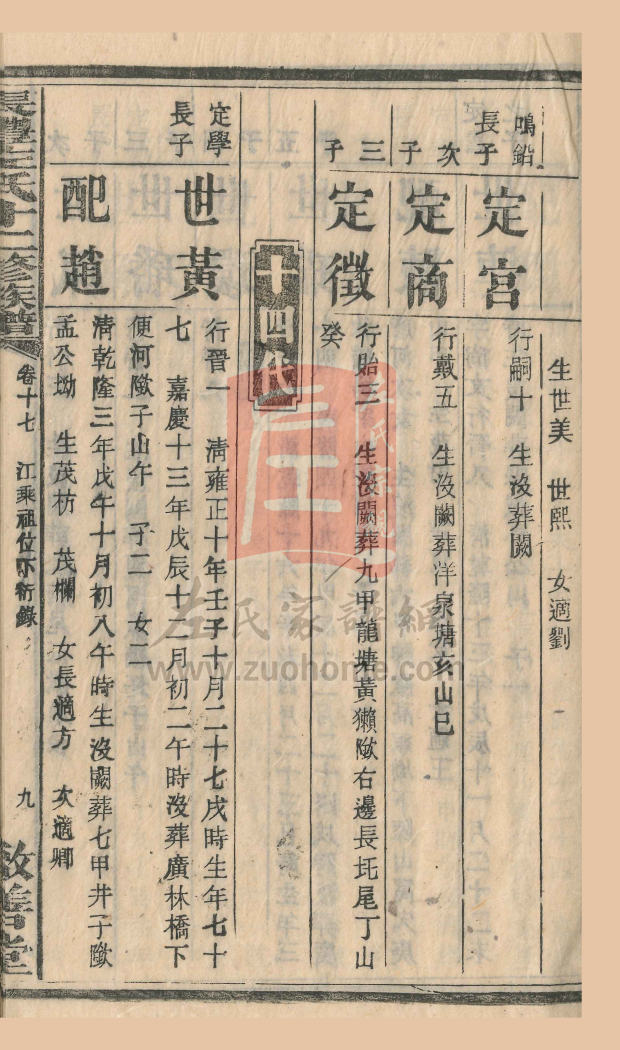 生世美 世熙 女適劉
鳴鉛長子
定宮
行嗣十 生沒葬闕
次子
定商
行戴五 生沒闕葬洋泉塘亥山巳
三子
定徵
行貽三 生沒闕葬九甲龍塘黃獺歘右邊長坵尾丁山
癸
十四代
定學長子
世黃
行晉一 清雍正十年壬子十月二十七戌時生年七十
七 嘉慶十三年戊辰十二月初二午時沒葬廣林橋下
便河歘子山午 子二 女二
配趙
清乾隆三年戊午十月初八午時生沒闕葬七甲井子歘
孟公坳 生茂枋 茂欄 女長適方 次適卿
王氏十二修族譜
卷十七 江乘祖位下衍錄
九
敦善堂
左氏家譜網
www.zuohome.com